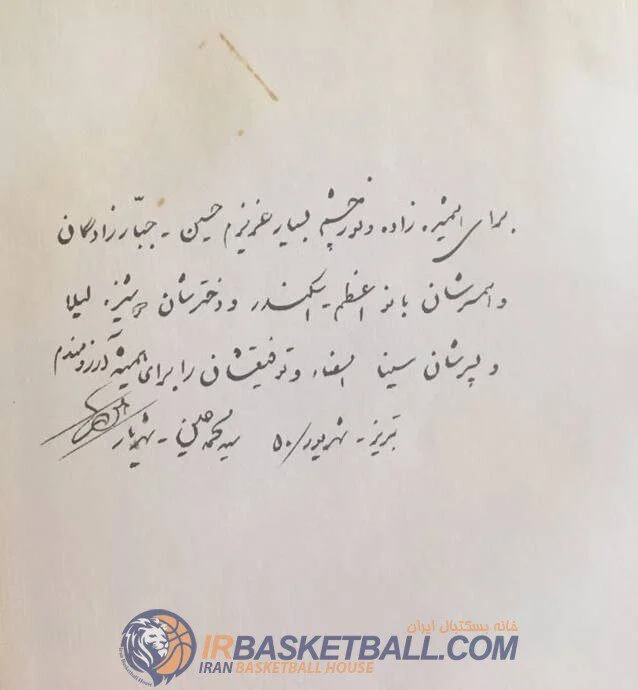 برای همشیره زاده و نور چشم بسیار عزیزم حسین - جبّارزادگان
و همسرشان بانو اعظم - اسکندر و دخترشان لیلا
و پسرشان سینا و توفیقشان را برای همیشه آرزومندم
تبریز - شهریور/۵۰ سید محمد حسین - شهریار
خانه بسکتبال ایران
IRBASKETBALL.COM
IRAN BASKETBALL HOUSE
Iran Basketball House